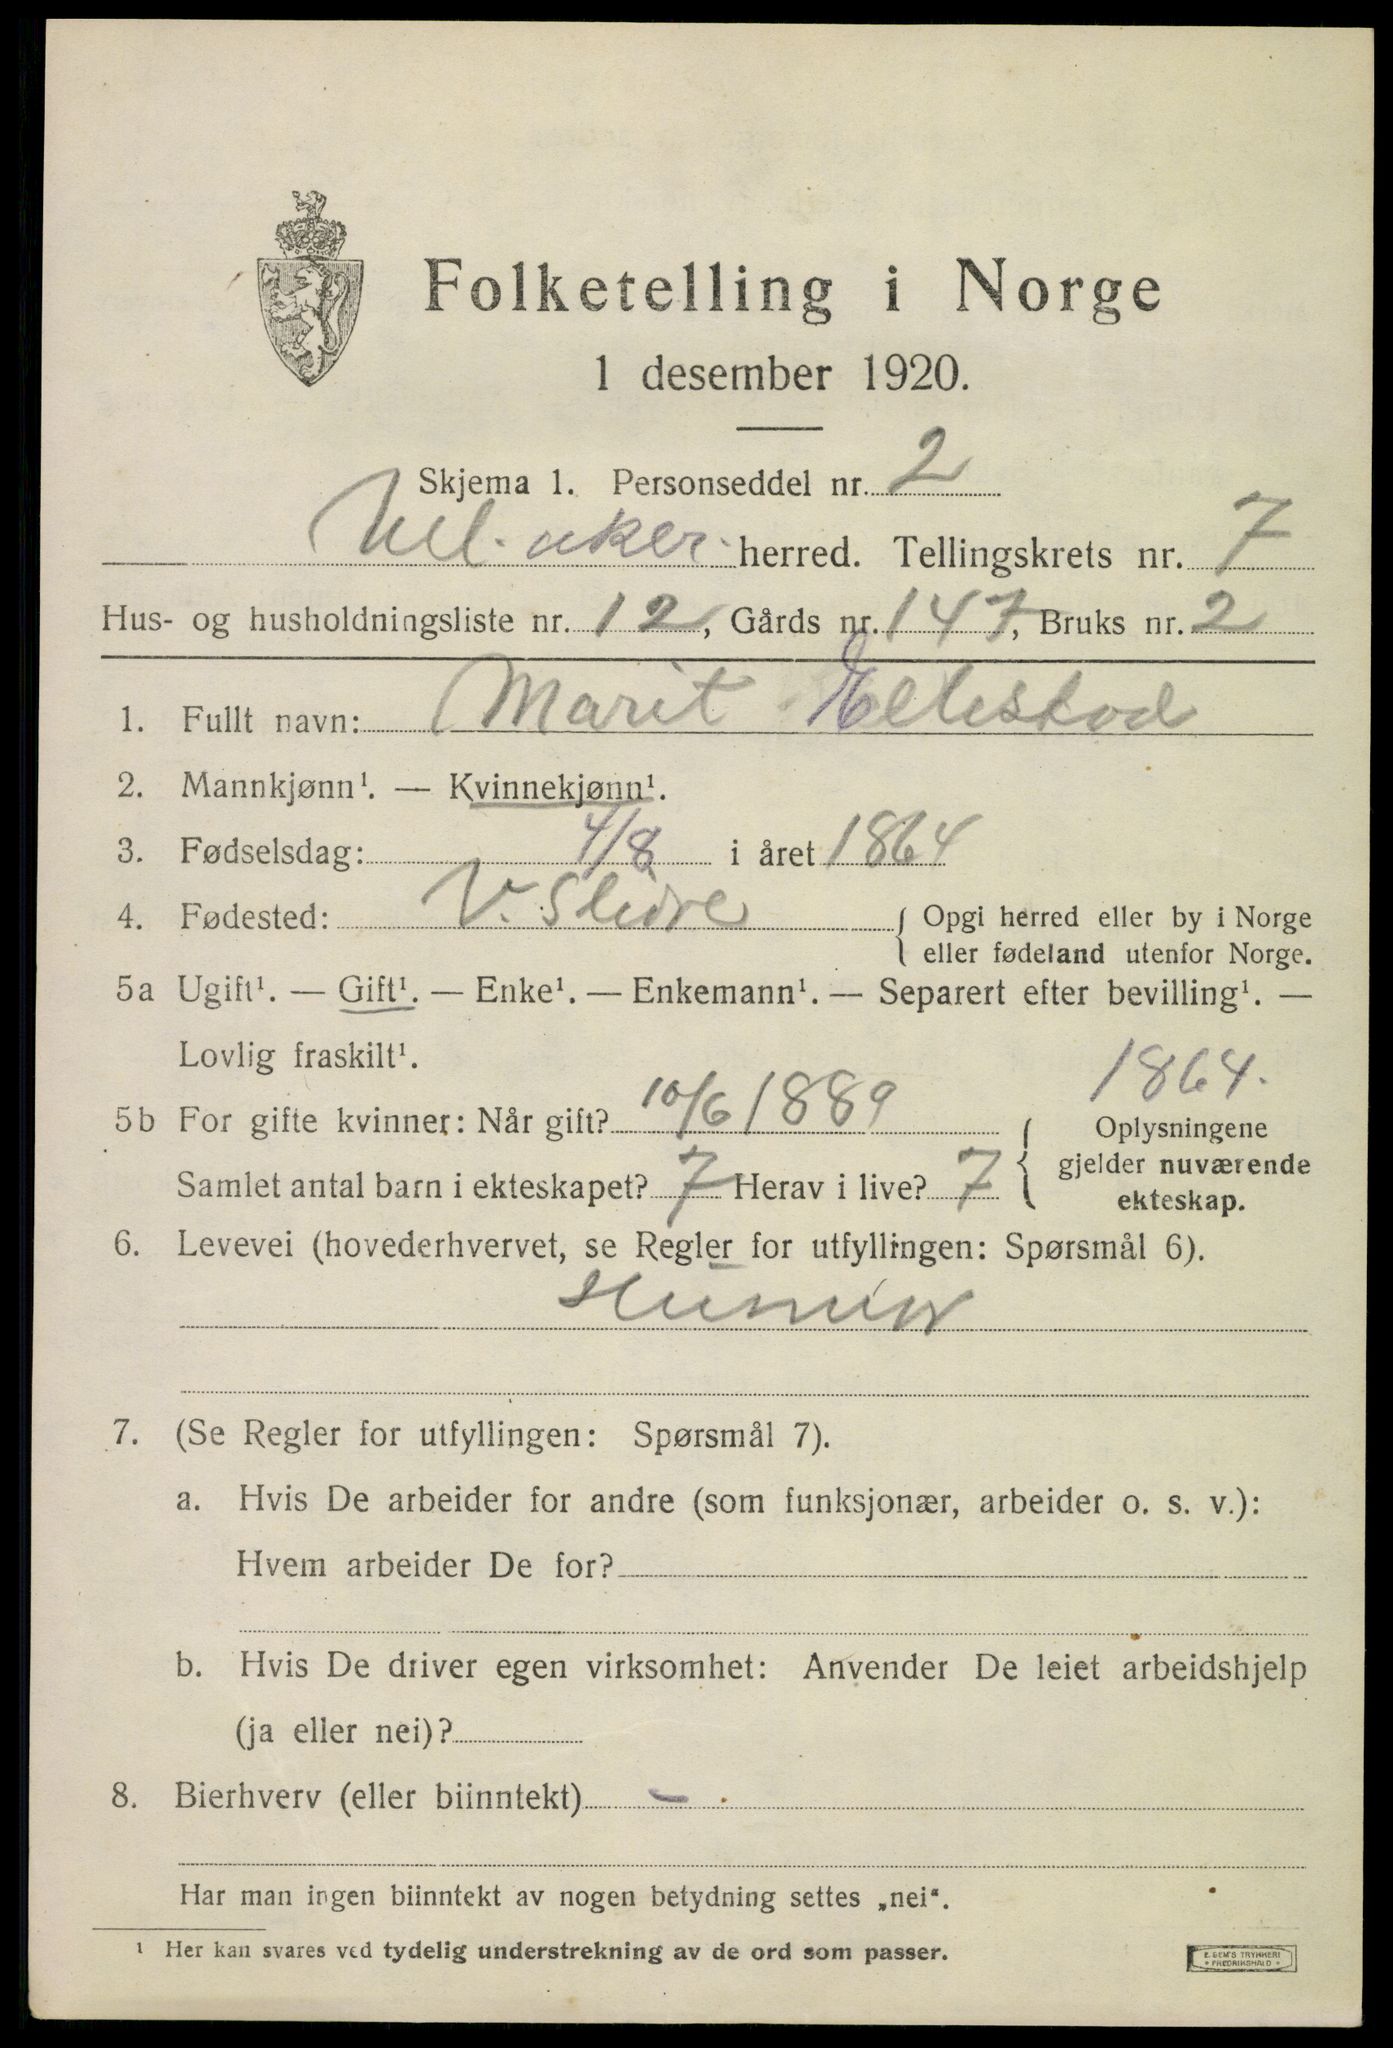 Folketelling i Norge
1 desember 1920.
Skjema 1. Personseddel nr. 2
Ull.aker herred. Tellingskrets nr. 7
Hus- og husholdningsliste nr. 12, Gårds nr. 147, Bruks nr. 2
1. Fullt navn: Marit
2. Mannkjønn¹. — Kvinnekjønn¹.
3. Fødselsdag: 4/8 i året 1864
4. Fødested: V. Slidre { Opgi herred eller by i Norge
eller fødeland utenfor Norge.
5a Ugift¹. — Gift¹. — Enke¹. — Enkemann¹. — Separert efter bevilling¹. —
Lovlig fraskilt¹.
1864.
5b For gifte kvinner: Når gift? 10/6 1889
Samlet antal barn i ekteskapet? 7 Herav i live? 7
{ Oplysningene
gjelder nuværende
ekteskap.
6. Levevei (hovederhvervet, se Regler for utfyllingen: Spørsmål 6).
7. (Se Regler for utfyllingen: Spørsmål 7).
a. Hvis De arbeider for andre (som funksjonær, arbeider o. s. v.):
Hvem arbeider De for?
b. Hvis De driver egen virksomhet: Anvender De leiet arbeidshjelp
(ja eller nei)?
8. Bierhverv (eller biinntekt) -
Har man ingen biinntekt av nogen betydning settes „nei“.
¹ Her kan svares ved tydelig understrekning av de ord som passer.
E. SEM'S TRYKKERI
* FREDRIKSHALD *